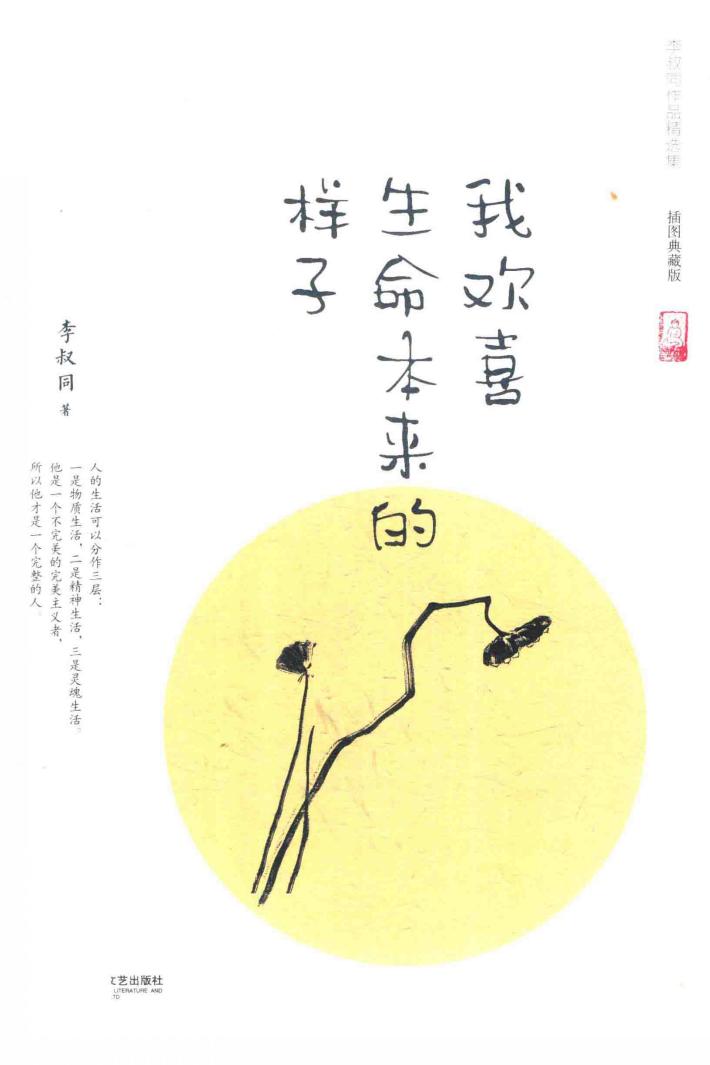 李叔同作品精选集
插图典藏版
我欢喜
生命本来的
样子
李叔同 著
人的生活可以分作三层：
一是物质生活，二是精神生活，三是灵魂生活。
他是一个不完美的完美主义者，
所以他才是一个完整的人。
艺出版社
LITERATURE AND